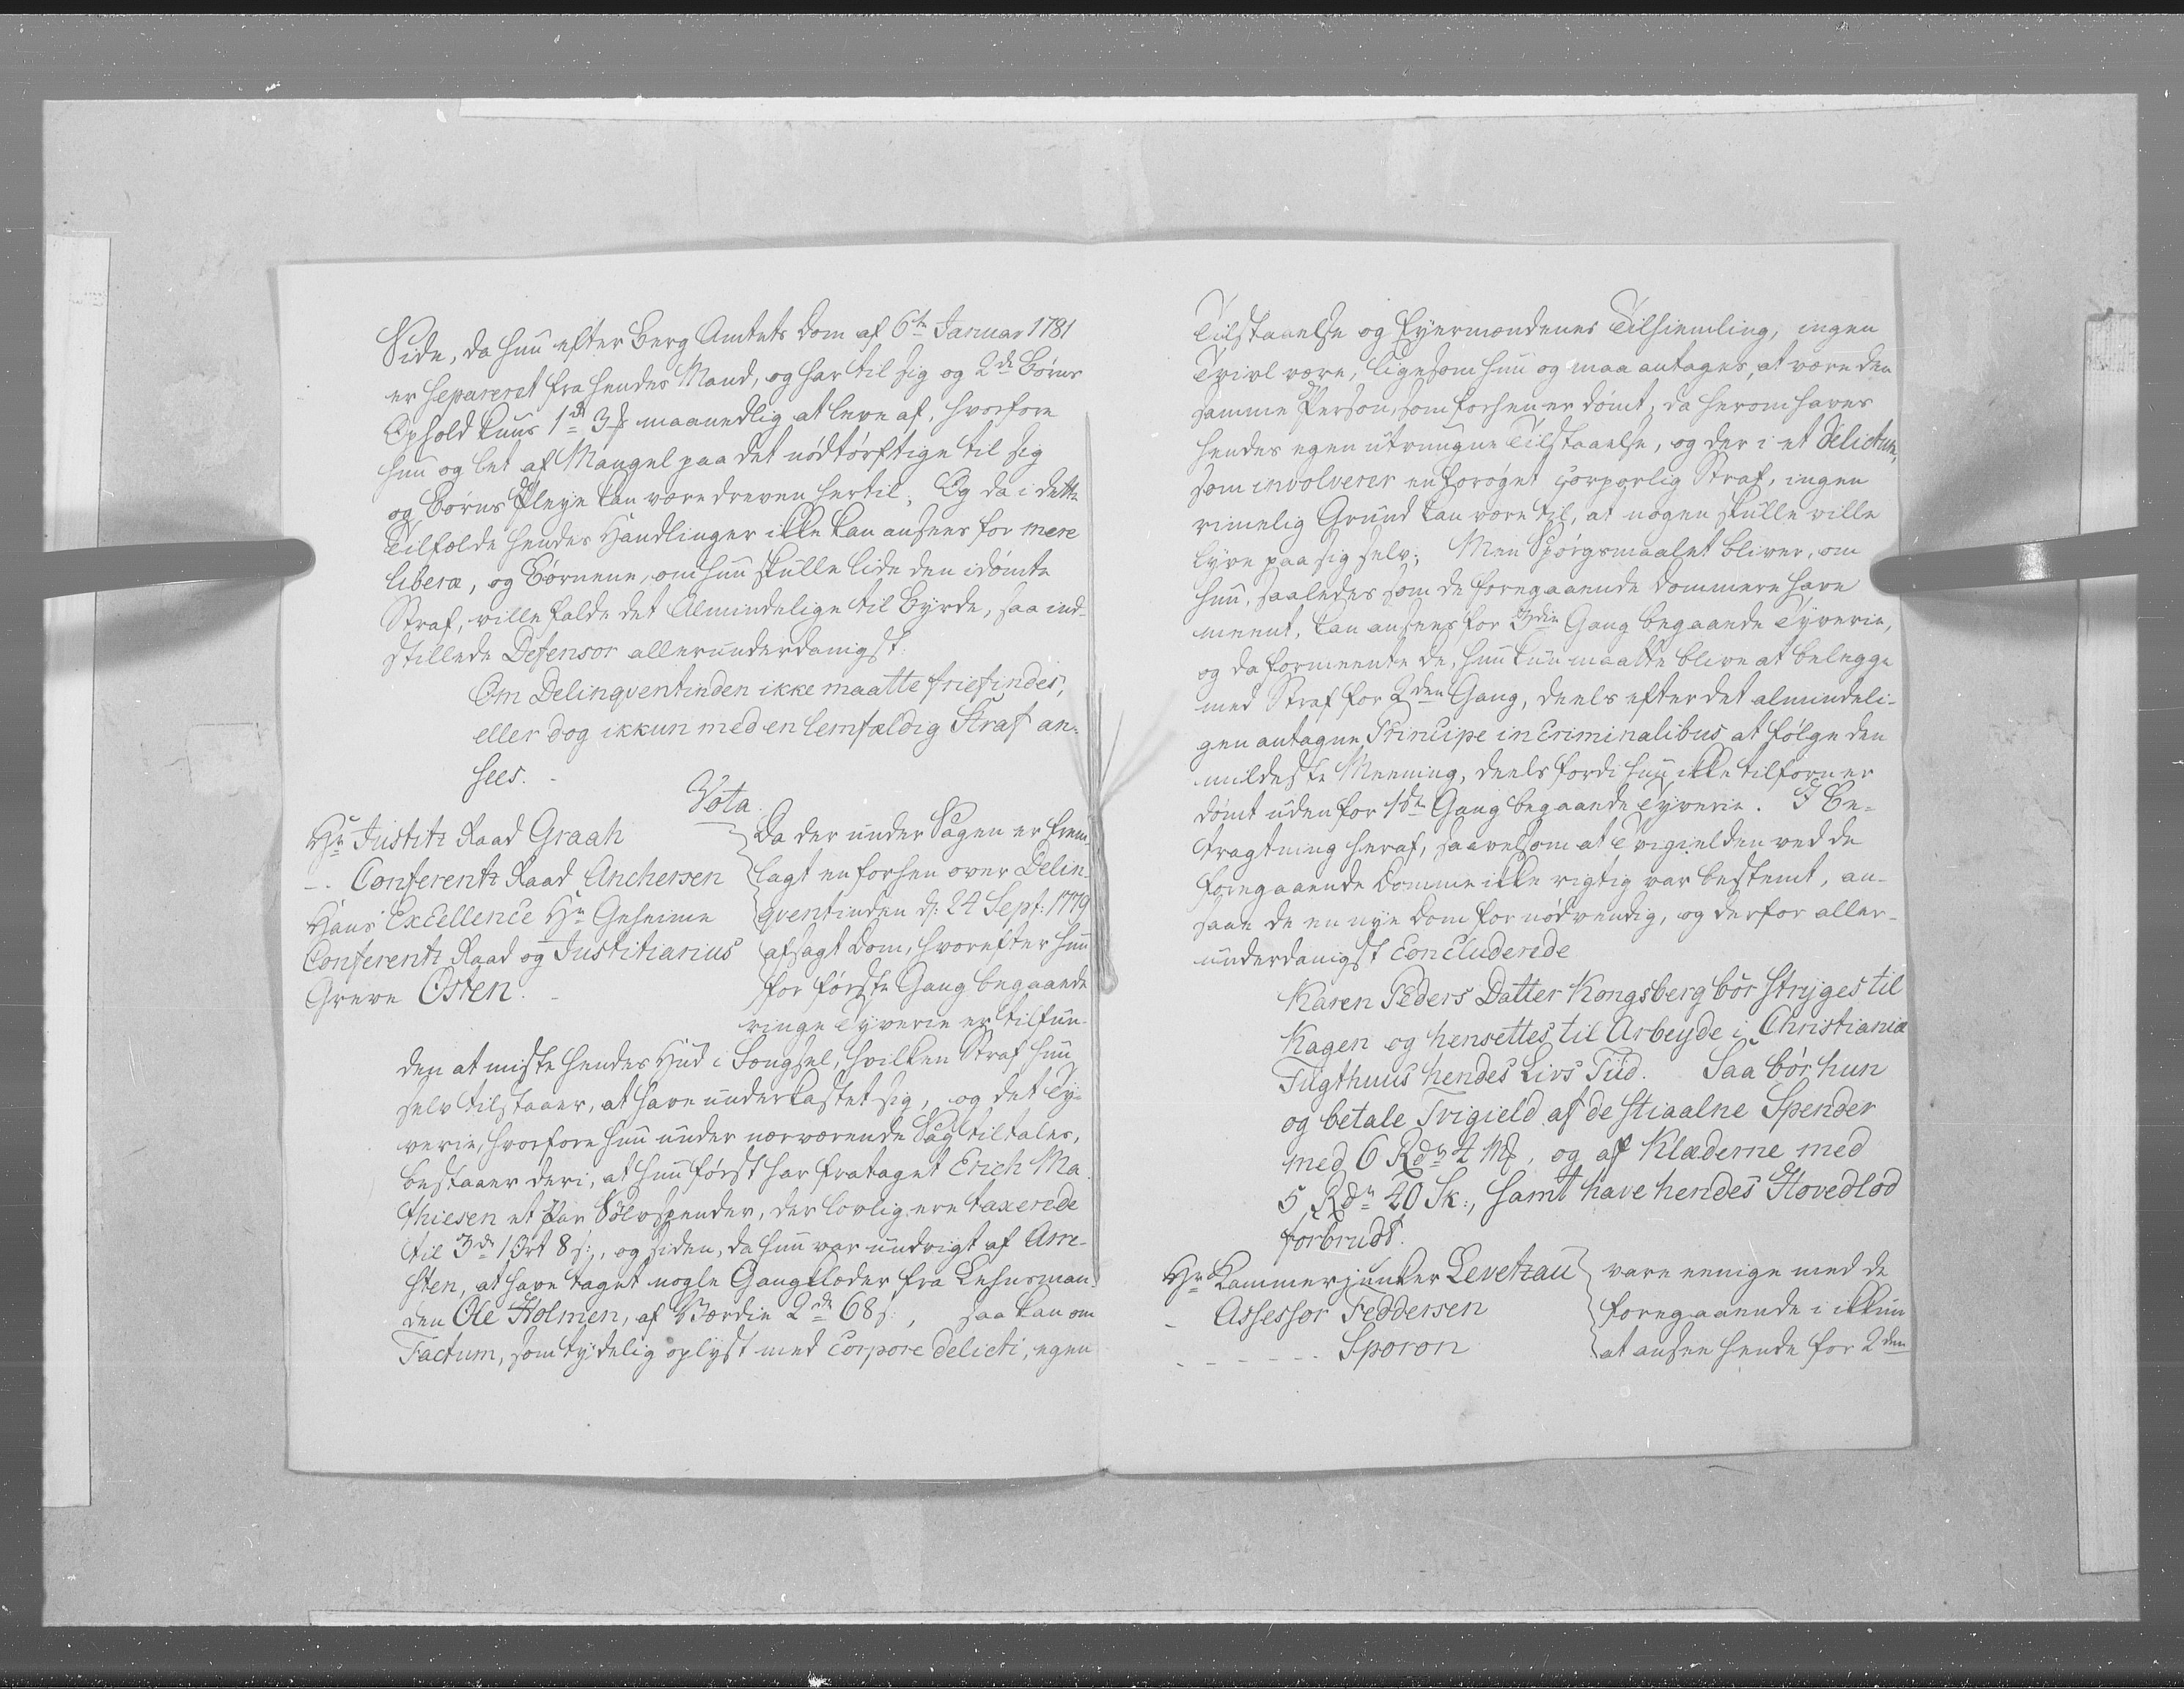 Side, da hun efter Berg Amtets Dom af 6te Januar 1781
er separeret fra hendes Mand, og har til sig og 2de Børns
Ophold kuns 1rd 3 maanedlig at leve af, hvorfore
hun og let af Mangel paa det nødtørftige til sig
og Børns Pleye kan være dreven hertil; Og da i dette
Tilfælde hendes Handlinger ikke kan ansees for mere
liberæ, og Børnene, om hun skulle lide den idømte
Straf, ville falde det Almindelige til Byrde, saa ind-
stillede Defensor allerunderdanigst:
Om Delinqventinden ikke maatte friefindes,
eller dog ikkun med en lemfældig Straf an-
sees.
Vota
Hr Justitz Raad Graah
-. Conferentz Raad Anchersen
Hans Excellence Hr Geheime
Conferentz Raad og Justitiarius
Greve Osten.
Da der under Sagen er frem-
lagt en forhen over Delin-
qventinden d: 24 Sept: 1779
afsagt Dom, hvorefter hun
for første Gang begaaende
ringe Tyverie er tilfun-
den at miste hendes Hud i Fængsel, hvilken Straf hun
selv tilstaaer, at have underkastet sig, og det Ty-
verie, hvorfore hun under nærværende Sag tiltales,
bestaaer deri, at hun først har frataget Erich Ma-
thiesen et Par Sølvspender, der lovlig ere taxerede
til 3rd 1 Ort 8 s:, og siden, da hun var undvigt af Arre-
sten, at have taget nogle Gangklæder fra Lehnsman-
den Ole Holmen, af Værdie 2rd 68 s:, saa kan om
Factum, som tydelig oplyst med Corpore delicti, egen
Tilstaaelse og Eyermændenes Tilhiemling, ingen
Tvivl være, ligesom hun og maa antages, at være den
samme Person, som forhen er dømt, da herom haves
hendes egen utvungne Tilstaaelse, og der i et Delictum,
som involverer en forøget corporlig Straf, ingen
rimelig Grund kan være til, at nogen skulle ville
lyve paa sig selv; Men Spørgsmaalet bliver, om
hun, saaledes som de foregaaende Dommere have
meent, kan ansees for 3die Gang begaaende Tyverie,
og da formeente de, hun kun maatte blive at belegge
med Straf for 2den Gang, deels efter det almindeli-
gen antagne Principe in Criminalibus at følge den
mildeste Meening, deels fordi hun ikke tilforn er
dømt uden for 1ste Gang begaaende Tyverie. I Be-
tragtning heraf, saavelsom at Tvigielden ved de
foregaaende Domme ikke rigtig var bestemt, an-
saae de en nye Dom for nødvendig, og derfor aller-
underdanigst Concluderede
Karen Peders Datter Kongsberg bør stryges til
Kagen og hensettes til Arbeyde i Christiania
Tugthuus hendes Livs Tiid. Saa bør hun
og betale Tvigield af de stiaalne Spender
med 6 Rdr 2 Mk, og af Klæderne med
5 Rdr 40 Sk:, samt have hendes Hovedlod
forbrudt.
Hr Kammerjunker Levetzau
- Assessor Feddersen
- - - - - - Sporon
vare eenige med de
foregaaende i ikkun
at ansee hende for 2den